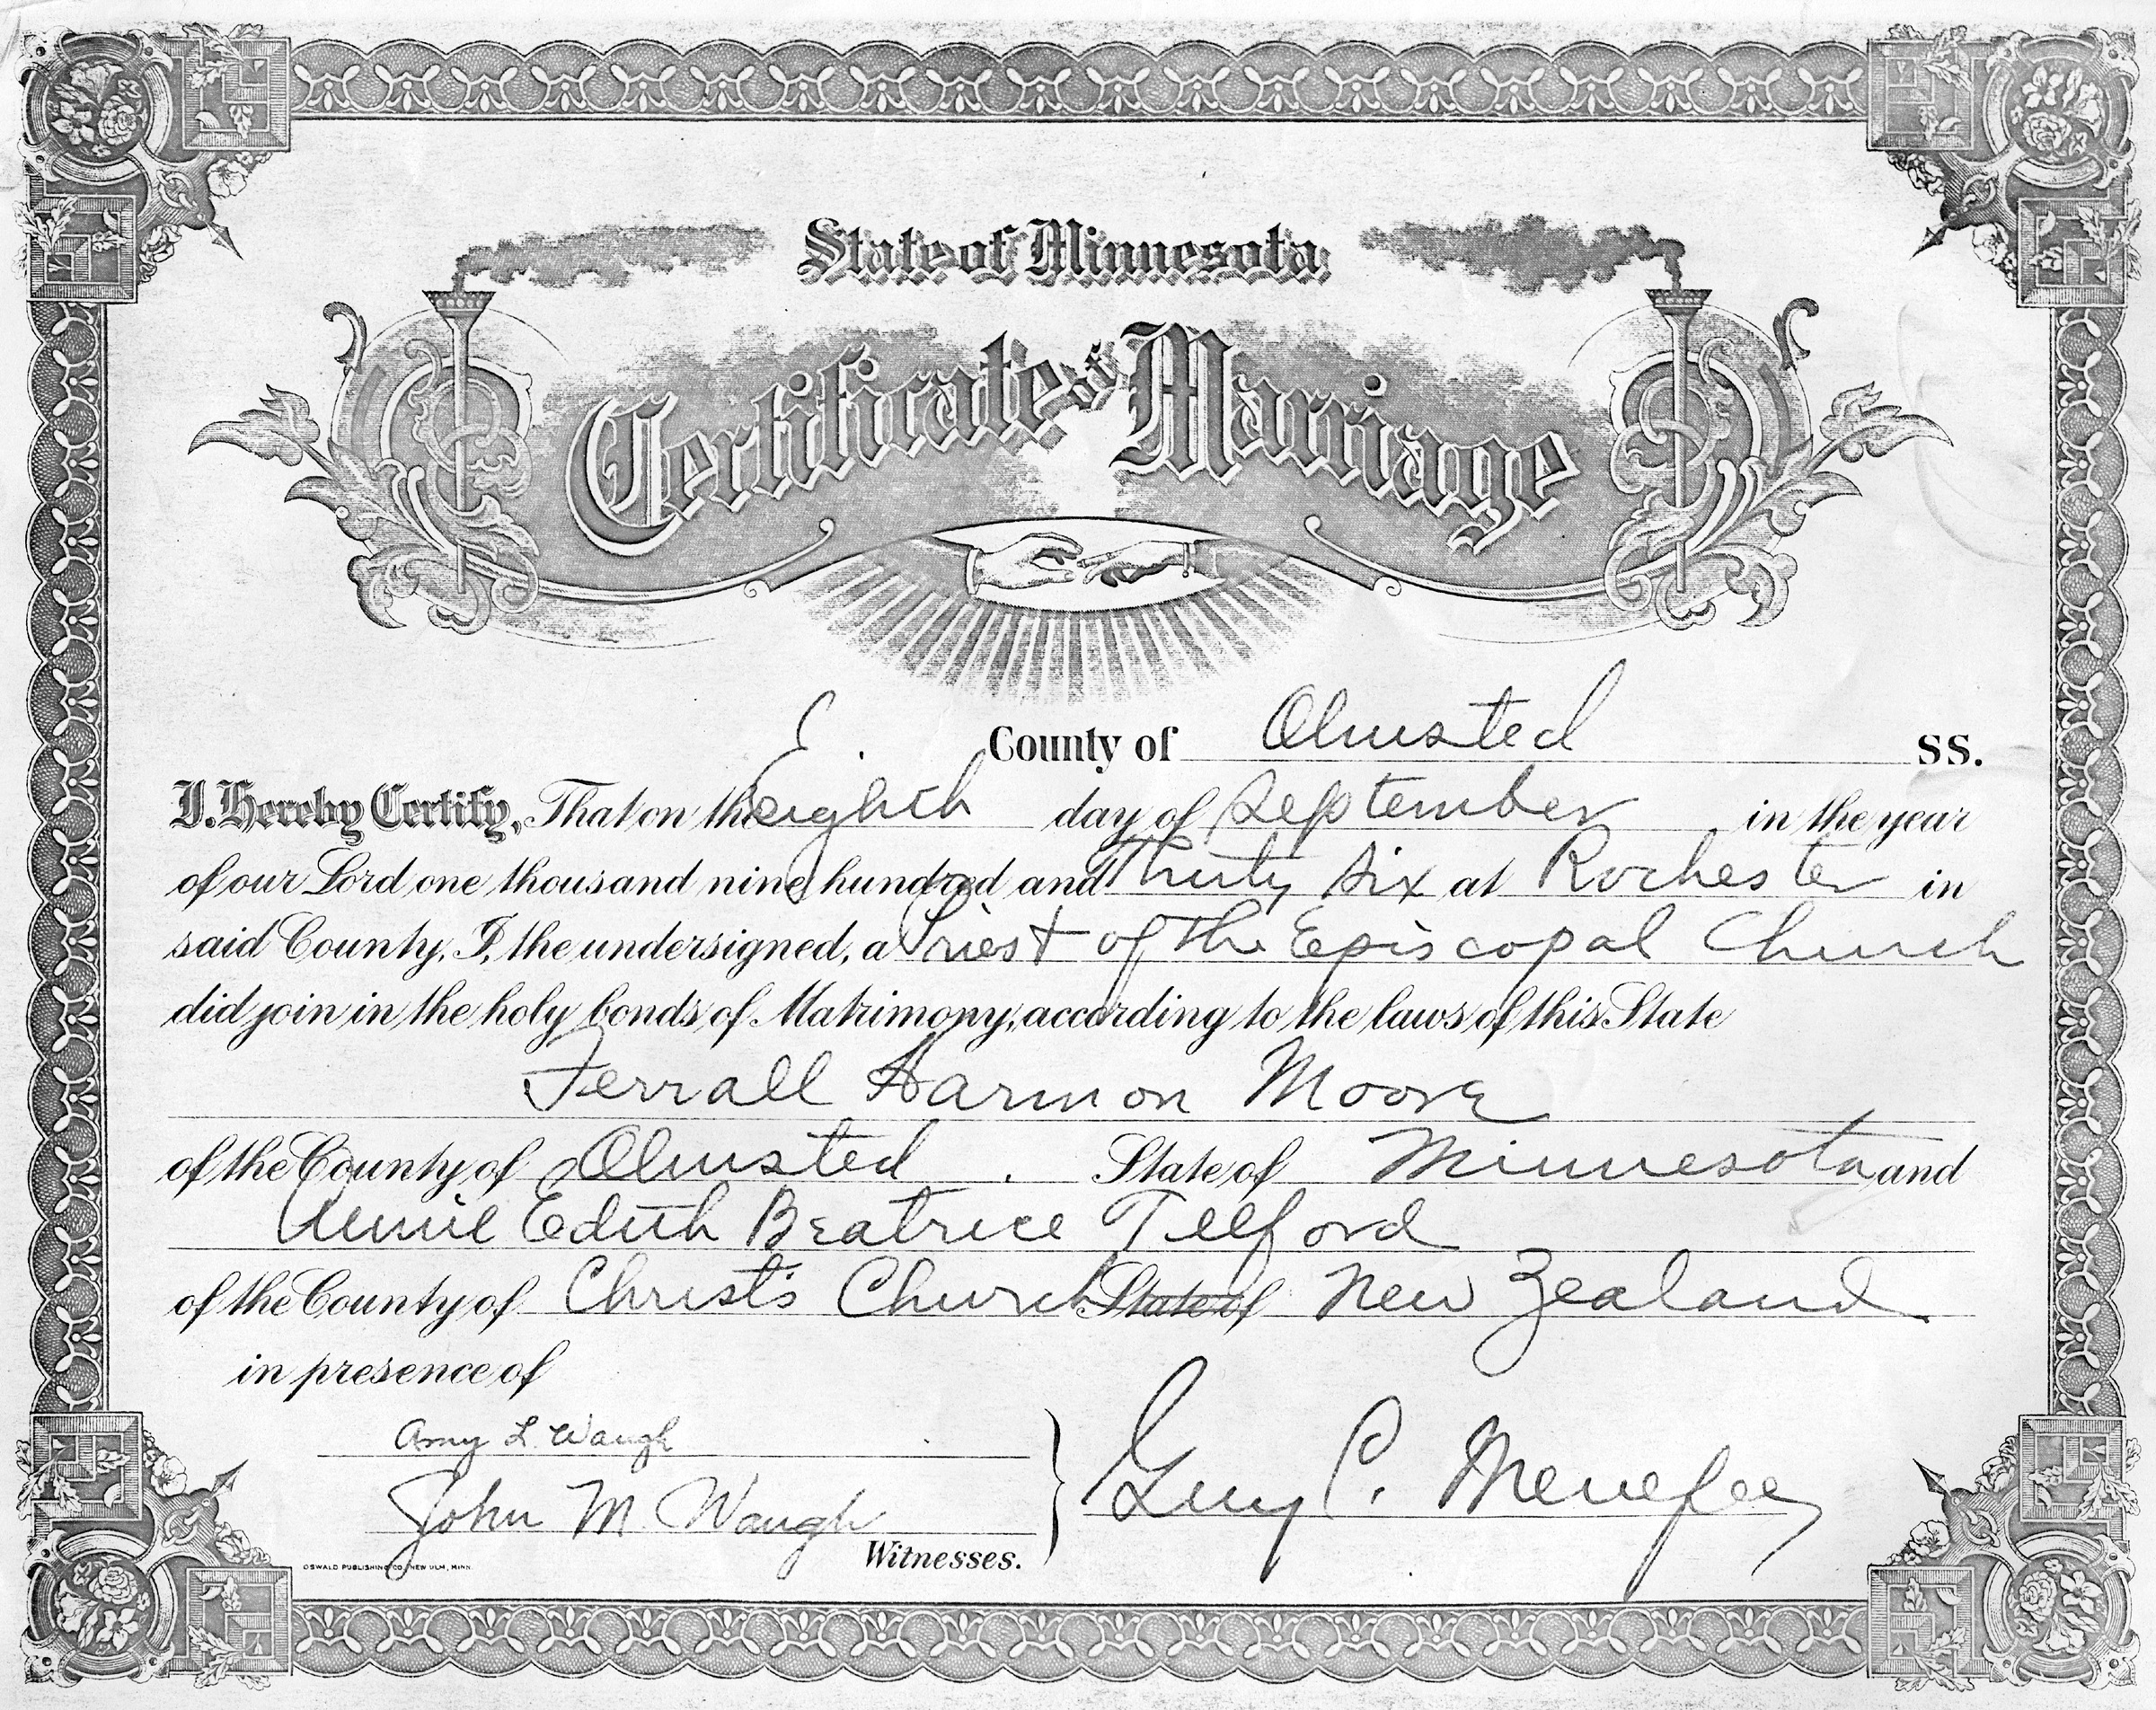 State of Minnesota
Certificate of Marriage
County of Olmsted SS.
I Hereby Certify, That on the eighth day of September in the year
of our Lord one thousand nine hundred and Thirty Six at Rochester in
said County, I, the undersigned, a Priest of the Episcopal Church
did join in the holy bonds of Matrimony, according to the laws of this State
Ferrall Harmon Moore
of the County of Olmsted . State of Minnesota and
Annie Edith Beatrice Telford
of the County of Christ's Church State of New Zealand
in presence of
Amy L Waugh
John M Waugh
Guy C. Menefee
Witnesses.
OSWALD PUBLISHING CO., NEW ULM, MINN.